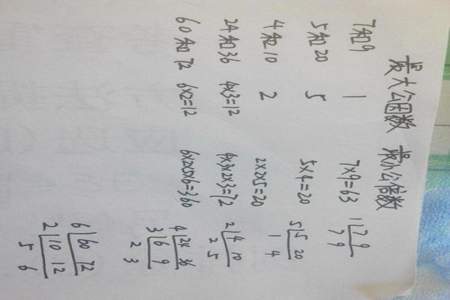 最大公因数 最小公倍数
7和9 1 7×9=63 1|7 9
7 9
5和20 5 5×4=20 5|5 20
1 4
4和10 2 2×2×5=20 2|4 10
2 5
24和36 4×3=12 4×3×2×3=72 4|24 36
3|6 9
2 3
60和72 6×2=12 6×2×5×6=360 6|60 72
2|10 12
5 6